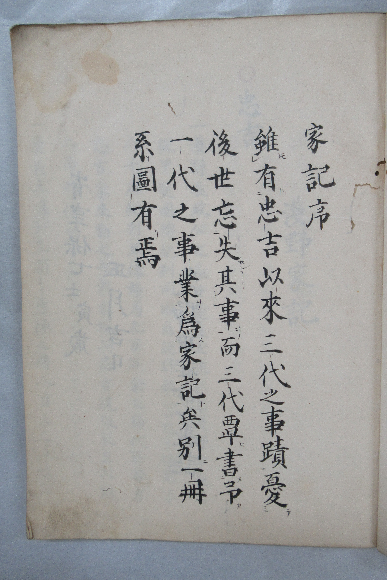 家記序
雖有忠吉以來三代之事蹟憂
後世忘失其事而三代畢書予
一代之事業爲家記矣別一冊
系圖有焉